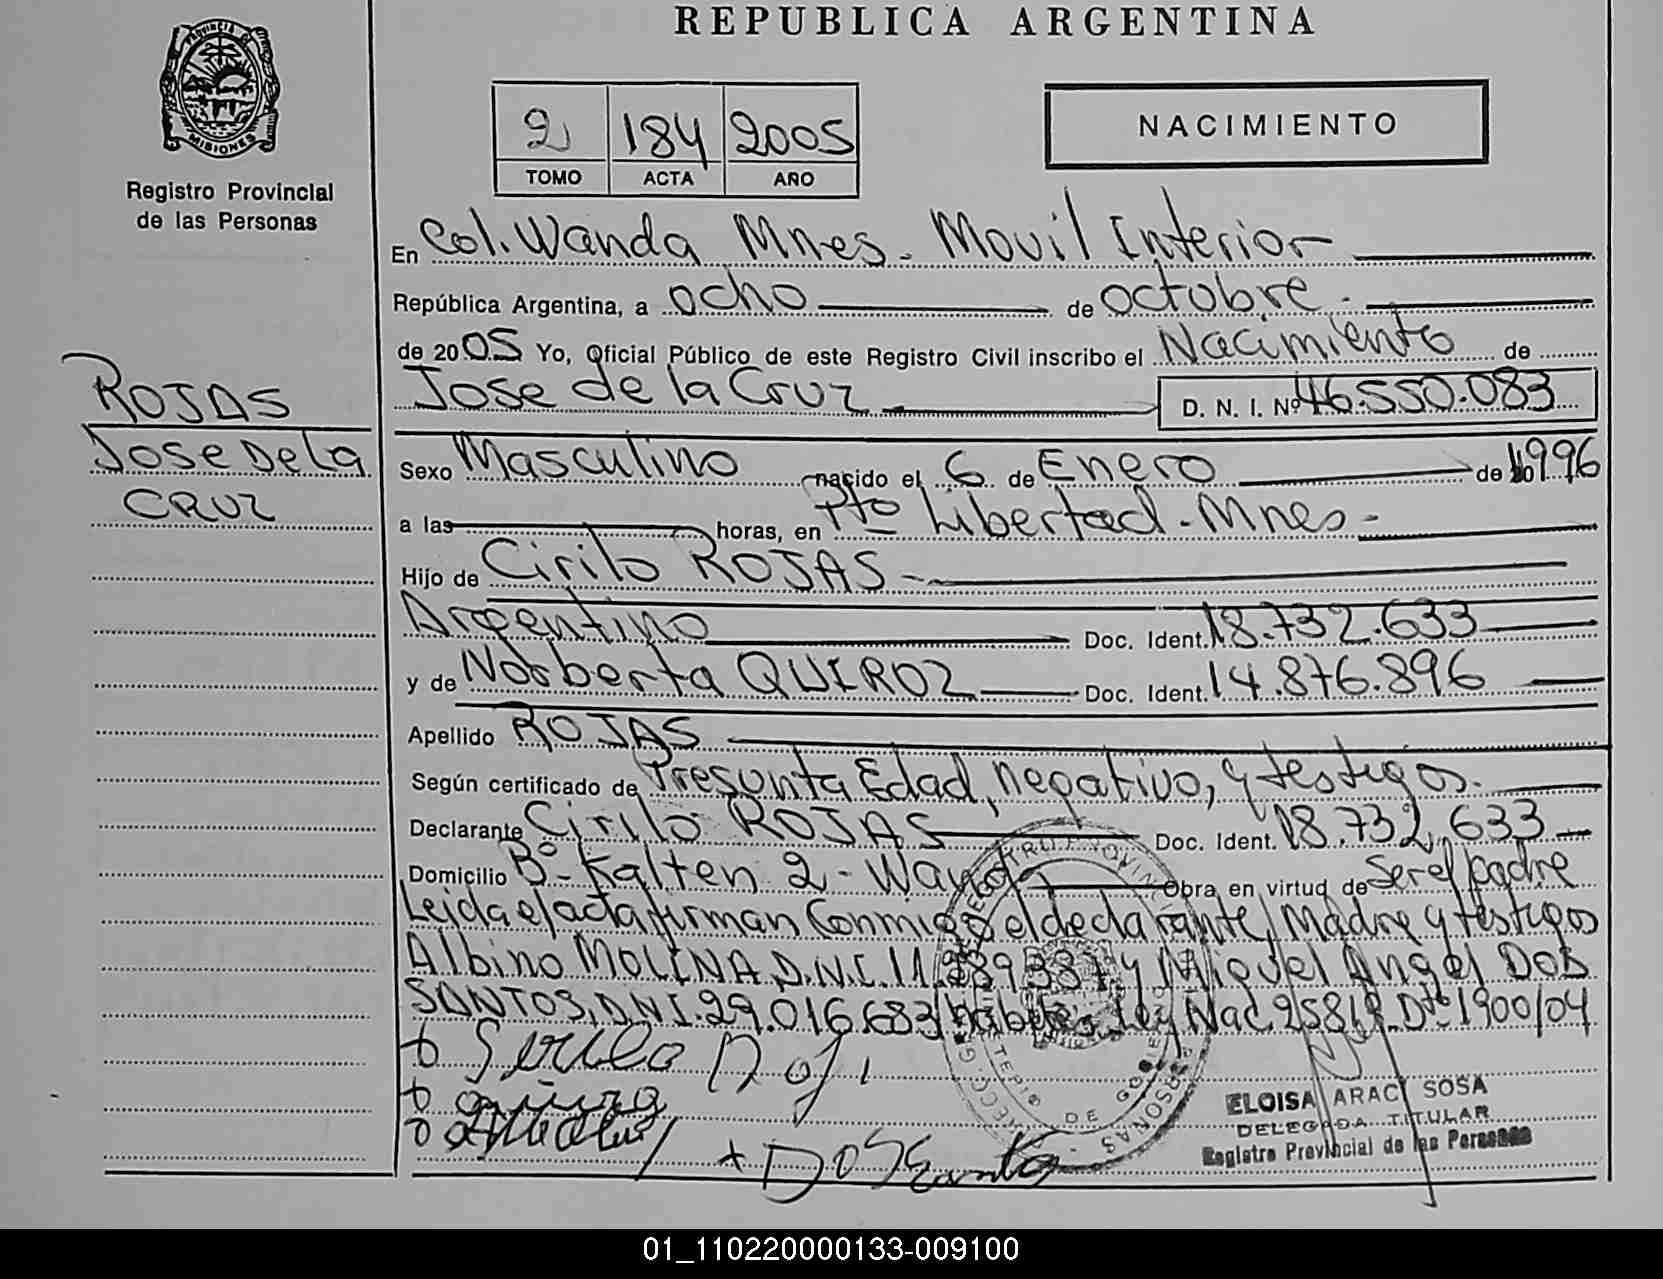 REPUBLICA ARGENTINA
PROVINCIA DE
MISIONES
Registro Provincial
de las Personas
2 184 2005
TOMO ACTA AÑO
NACIMIENTO
En Col. Wanda Mnes. Movil Interior
República Argentina, a ocho de octubre.
de 2005 Yo, Oficial Público de este Registro Civil inscribo el Nacimiento de
Jose de la Cruz D. N. I. Nº 46.550.083
ROJAS
JOSE DE LA
CRUZ
Sexo Masculino nacido el 6 de Enero de 1996
a las horas, en Pto Libertad - Mnes -
Hijo de Cirilo ROJAS
Argentino Doc. Ident. 18.732.633
y de Norberta QUIROZ Doc. Ident. 14.876.896
Apellido ROJAS
Según certificado de Presunta Edad, negativo, y testigos.
Declarante Cirilo ROJAS Doc. Ident. 18.732.633
Domicilio Bº - Kalten 2 - Wanda Obra en virtud de Ser el padre
Leida el acta firman Conmigo el declarante, Madre y testigos
Albino MOLINA D.N.I. 11.289.387 y Miguel Angel DOS
SANTOS, D.N.I. 29.016.683 Ley Nac. 25819 Dto 1900/04
Dos Santos
ELOISA ARACI SOSA
DELEGADA TITULAR
Registro Provincial de las Personas
01_110220000133-009100